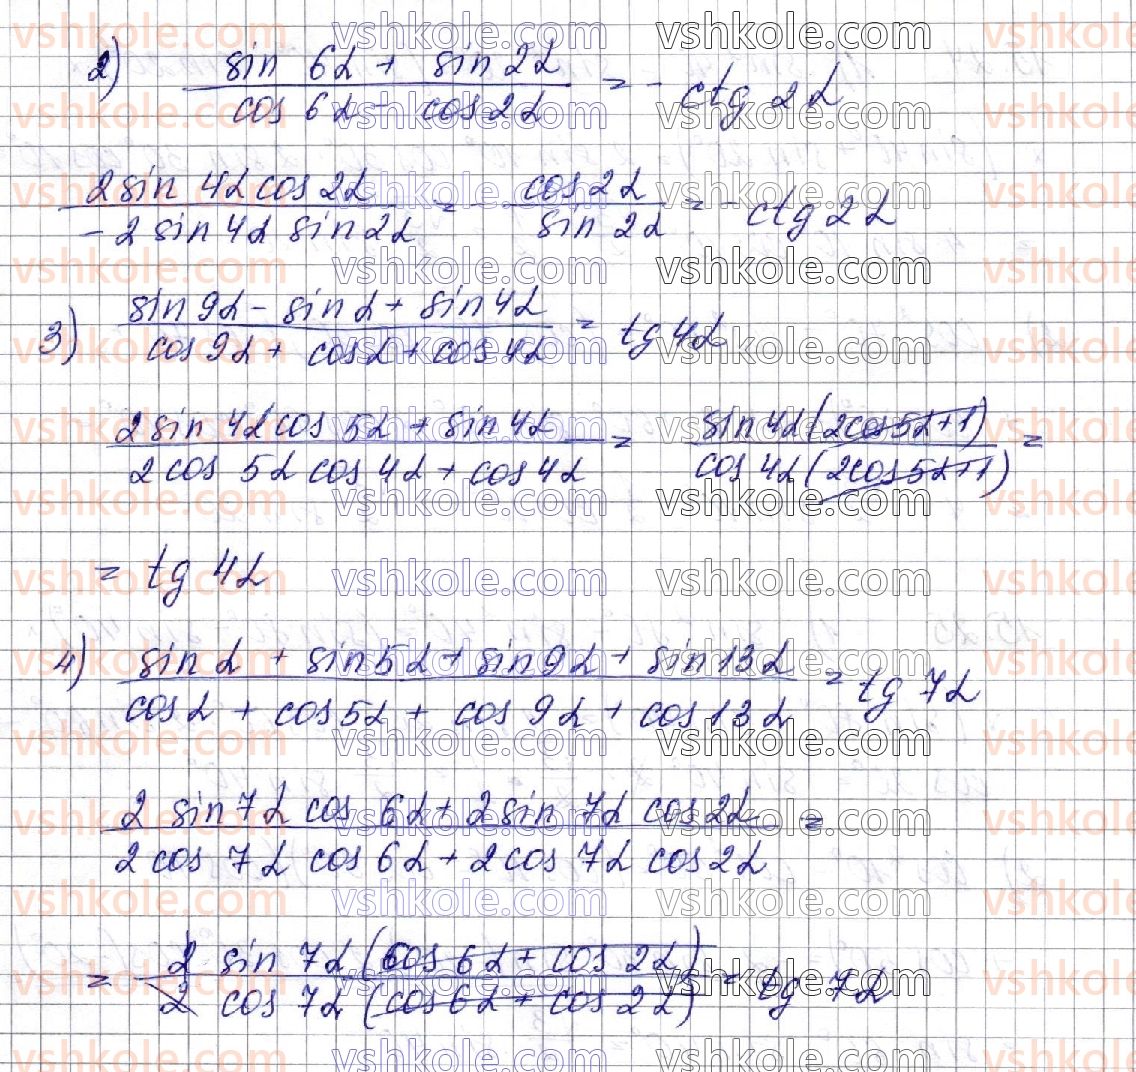 2) sin 6α + sin 2α / cos 6α - cos 2α = - ctg 2α
2 sin 4α cos 2α / - 2 sin 4α sin 2α = - cos 2α / sin 2α = - ctg 2α
3) sin 9α - sin α + sin 4α / cos 9α + cos α + cos 4α = tg 4α
2 sin 4α cos 5α + sin 4α / 2 cos 5α cos 4α + cos 4α = sin 4α (2cos 5α + 1) / cos 4α (2cos 5α + 1) =
= tg 4α
4) sin α + sin 5α + sin 9α + sin 13α / cos α + cos 5α + cos 9α + cos 13α = tg 7α
2 sin 7α cos 6α + 2 sin 7α cos 2α / 2 cos 7α cos 6α + 2 cos 7α cos 2α =
= 2 sin 7α (cos 6α + cos 2α) / 2 cos 7α (cos 6α + cos 2α) = tg 7α
vshkole.com